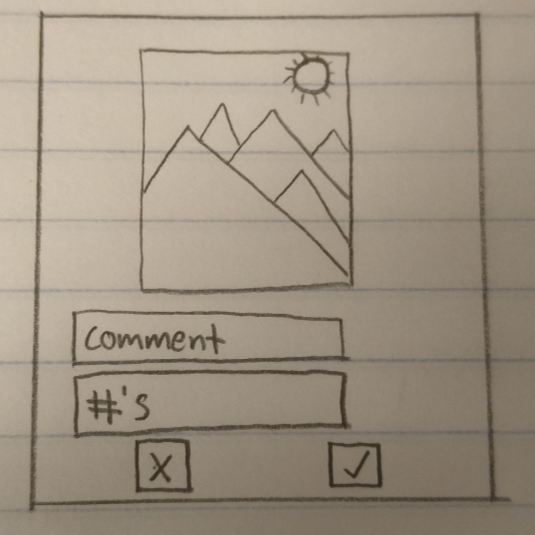 comment
#'s
X ✓